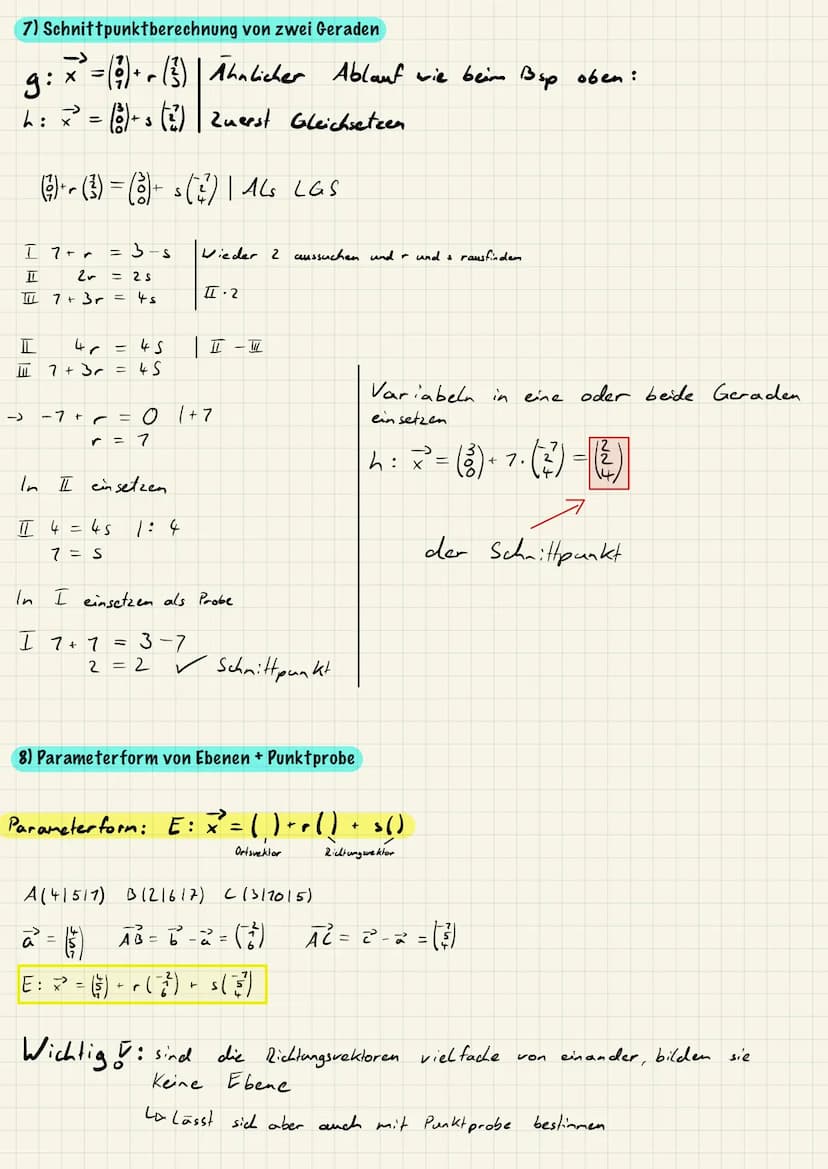 7) Schnittpunktberechnung von zwei Geraden
g: x⃗ = (1 0 1) + r (1 2 3) | Ähnlicher Ablauf wie beim Bsp oben:
h: x⃗ = (3 0 0) + s (-1 2 4) | Zuerst Gleichsetzen
(1 0 1) + r (1 2 3) = (3 0 0) + s (-1 2 4) | Als LGS
I 1 + r = 3 - s | Wieder 2 aussuchen und r und s rausfinden
II 2r = 2s
III 1 + 3r = 4s | II · 2
II 4r = 4s | II - III
III 1 + 3r = 4s
→ -1 + r = 0 | +1
r = 1
In II einsetzen
II 4 = 4s | : 4
1 = s
In I einsetzen als Probe
I 1 + 1 = 3 - 1
2 = 2 ✓ Schnittpunkt
Variabeln in eine oder beide Geraden
einsetzen
h: x⃗ = (3 0 0) + 1 · (-1 2 4) = (2 2 4)
der Schnittpunkt
8) Parameterform von Ebenen + Punktprobe
Parameterform: E: x⃗ = ( ) + r ( ) + s ( )
Ortsvektor Richtungsvektor
A(4|5|1) B(2|6|7) C(3|10|5)
a⃗ = (4 5 1) AB⃗ = b⃗ - a⃗ = (-2 1 6) AC⃗ = c⃗ - a⃗ = (-1 5 4)
E: x⃗ = (4 5 1) + r (-2 1 6) + s (-1 5 4)
Wichtig!: sind die Richtungsvektoren vielfache von einander, bilden sie
Keine Ebene
↳ Lässt sich aber auch mit Punktprobe bestimmen